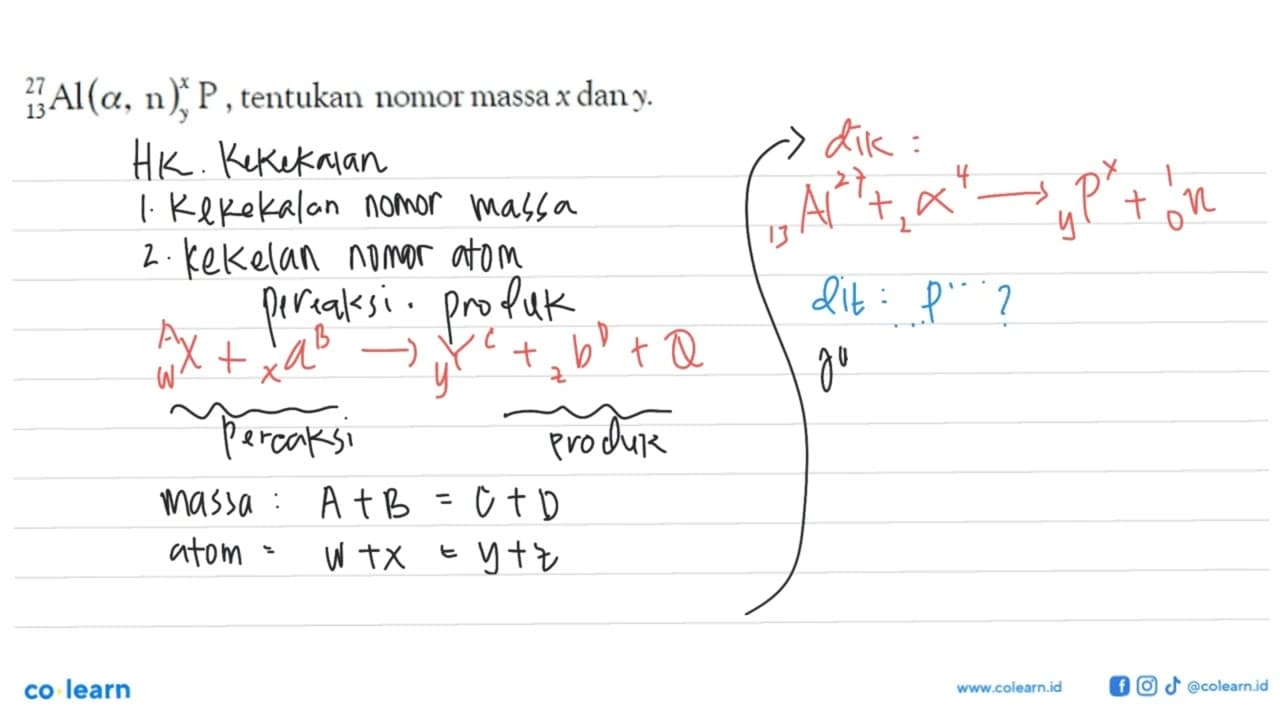 ²⁷₁₃Al(α, n)ˣᵧP, tentukan nomor massa x dan y.
HK. Kekekalan
1. Kekekalan nomor massa
2. kekelan nomor atom
pereaksi. produk
ᴬWX + ₓaᴮ → yYᶜ + zbᴰ + Q
Pereaksi produk
massa : A + B = C + D
atom = W + x = y + z
→ dik :
₁₃Al²⁷ + ₂α⁴ → yPˣ + ¹₀n
dit : ...P... ?
co learn
www.colearn.id
@colearn.id